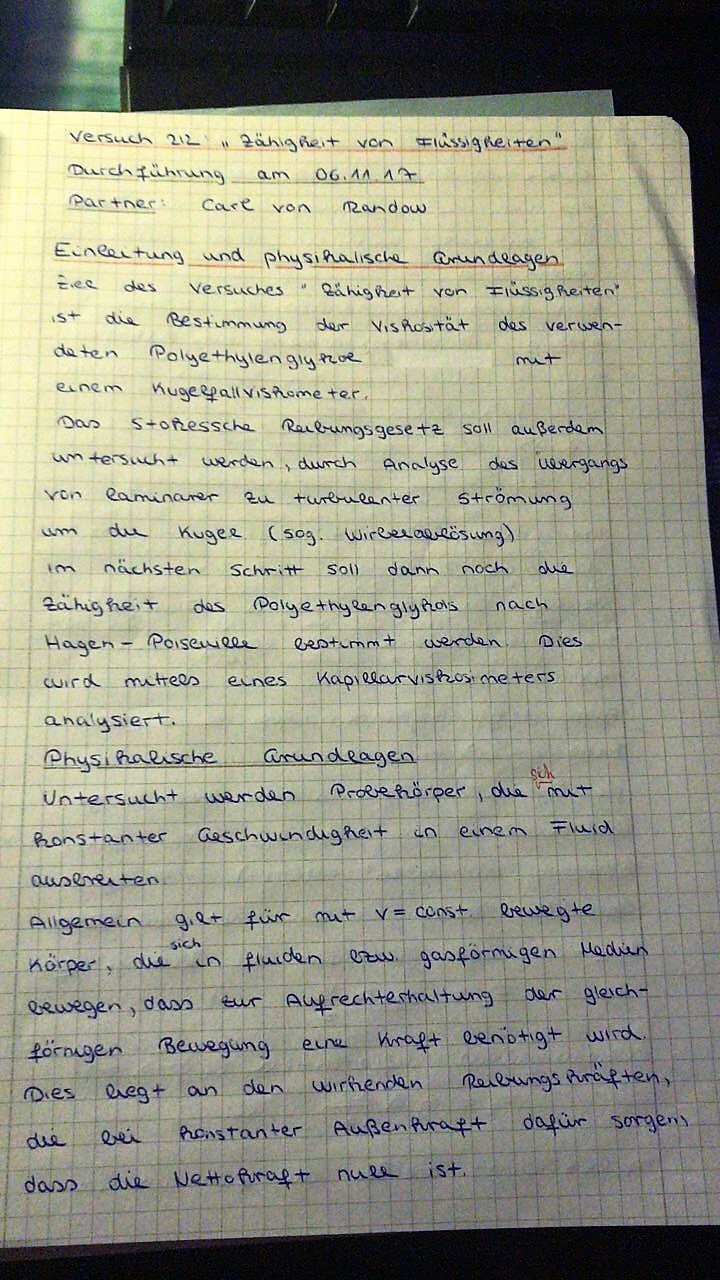 Versuch 212: „Zähigkeit von Flüssigkeiten"
Durchführung am 06.11.17
Partner: Carl von Randow
Einleitung und physikalische Grundlagen
Ziel des Versuches "Zähigkeit von Flüssigkeiten"
ist die Bestimmung der Viskosität des verwen-
deten Polyethylenglykol mit
einem Kugelfallviskometer.
Das Stokessche Reibungsgesetz soll außerdem
untersucht werden, durch Analyse des Übergangs
von laminarer zu turbulenter Strömung
um die Kugel (sog. Wirbelablösung)
Im nächsten Schritt soll dann noch die
Zähigkeit des Polyethylenglykols nach
Hagen-Poiseuille bestimmt werden. Dies
wird mittels eines Kapillarviskosimeters
analysiert.
Physikalische Grundlagen
Untersucht werden Probekörper, die sich mit
konstanter Geschwindigkeit in einem Fluid
ausbreiten.
Allgemein gilt für mit v = const. bewegte
Körper, die sich in fluiden bzw. gasförmigen Medien
bewegen, dass zur Aufrechterhaltung der gleich-
förmigen Bewegung eine Kraft benötigt wird.
Dies liegt an den wirkenden Reibungskräften,
die bei konstanter Außenkraft dafür sorgen,
dass die Nettokraft null ist.